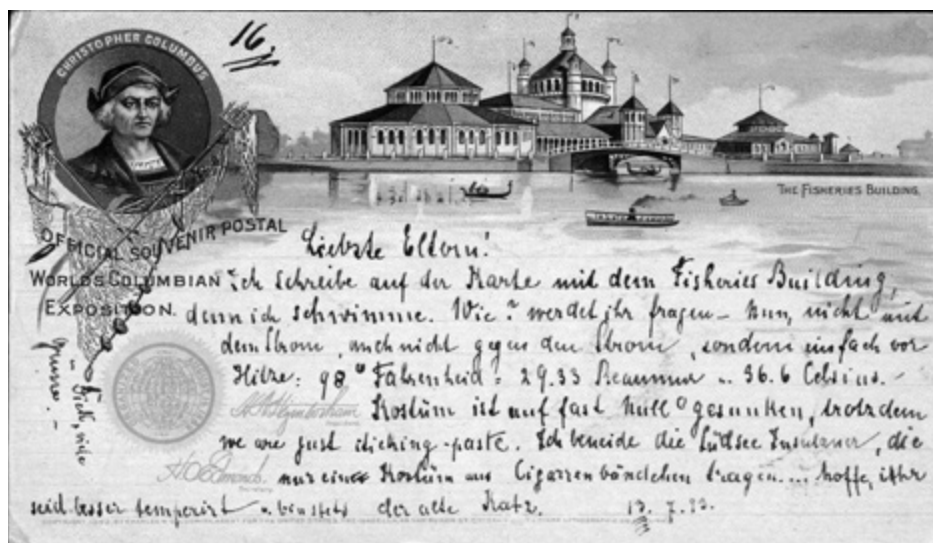 16.
CHRISTOPHER COLUMBUS
THE FISHERIES BUILDING.
OFFICIAL SOUVENIR POSTAL
WORLD'S COLUMBIAN
EXPOSITION.
Liebste Eltern!
Ich schreibe auf der Karte mit dem Fisheries Building,
denn ich schwimme. Wie? werdet ihr fragen – Nun, nicht mit
dem Strom, auch nicht gegen den Strom, sondern einfach vor
Hitze: 98° Fahrenheid = 29.33 Reaumur u. 36.6 Celsius. –
Kostüm ist auf fast Null° gesunken, trotzdem
we are just sticking-paste. Ich beneide die Südsee Insulaner, die
nur eine Kostüm aus Cigarrenbändchen tragen.... hoffe, ihr
seid besser temperirt u. bin stets der alte Katz. 13. 7. 93.
viele
Grüsse. –